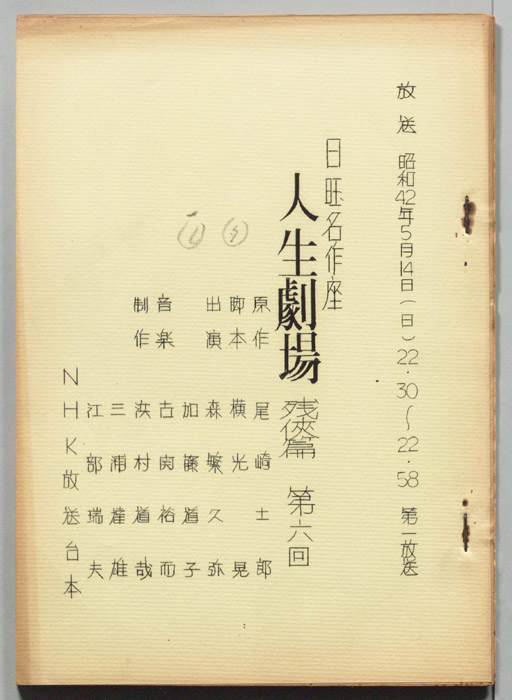 放送 昭和42年5月14日(日)22.30〜22.58 第一放送
日旺名作座
人生劇場 残侠篇 第六回
原作 尾崎士郎
脚本 横光晃
出演 森繁久弥
加藤道子
音楽 古関裕而
制作 浜村道哉
三浦達雄
江部瑞夫
NHK放送台本